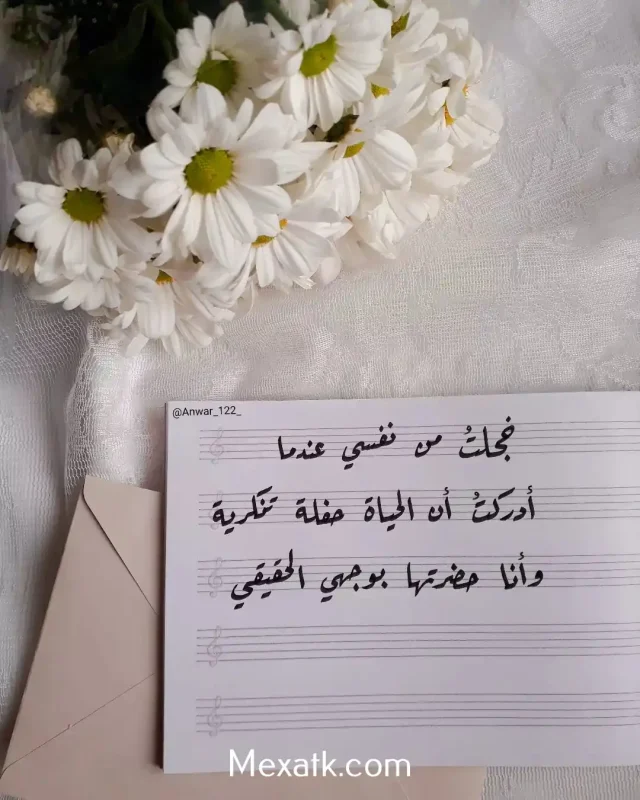 @Anwar_122_
خجلتُ من نفسي عندما
أدركتُ أن الحياة حفلة تنكرية
وأنا حضرتها بوجهي الحقيقي
Mexatk.com